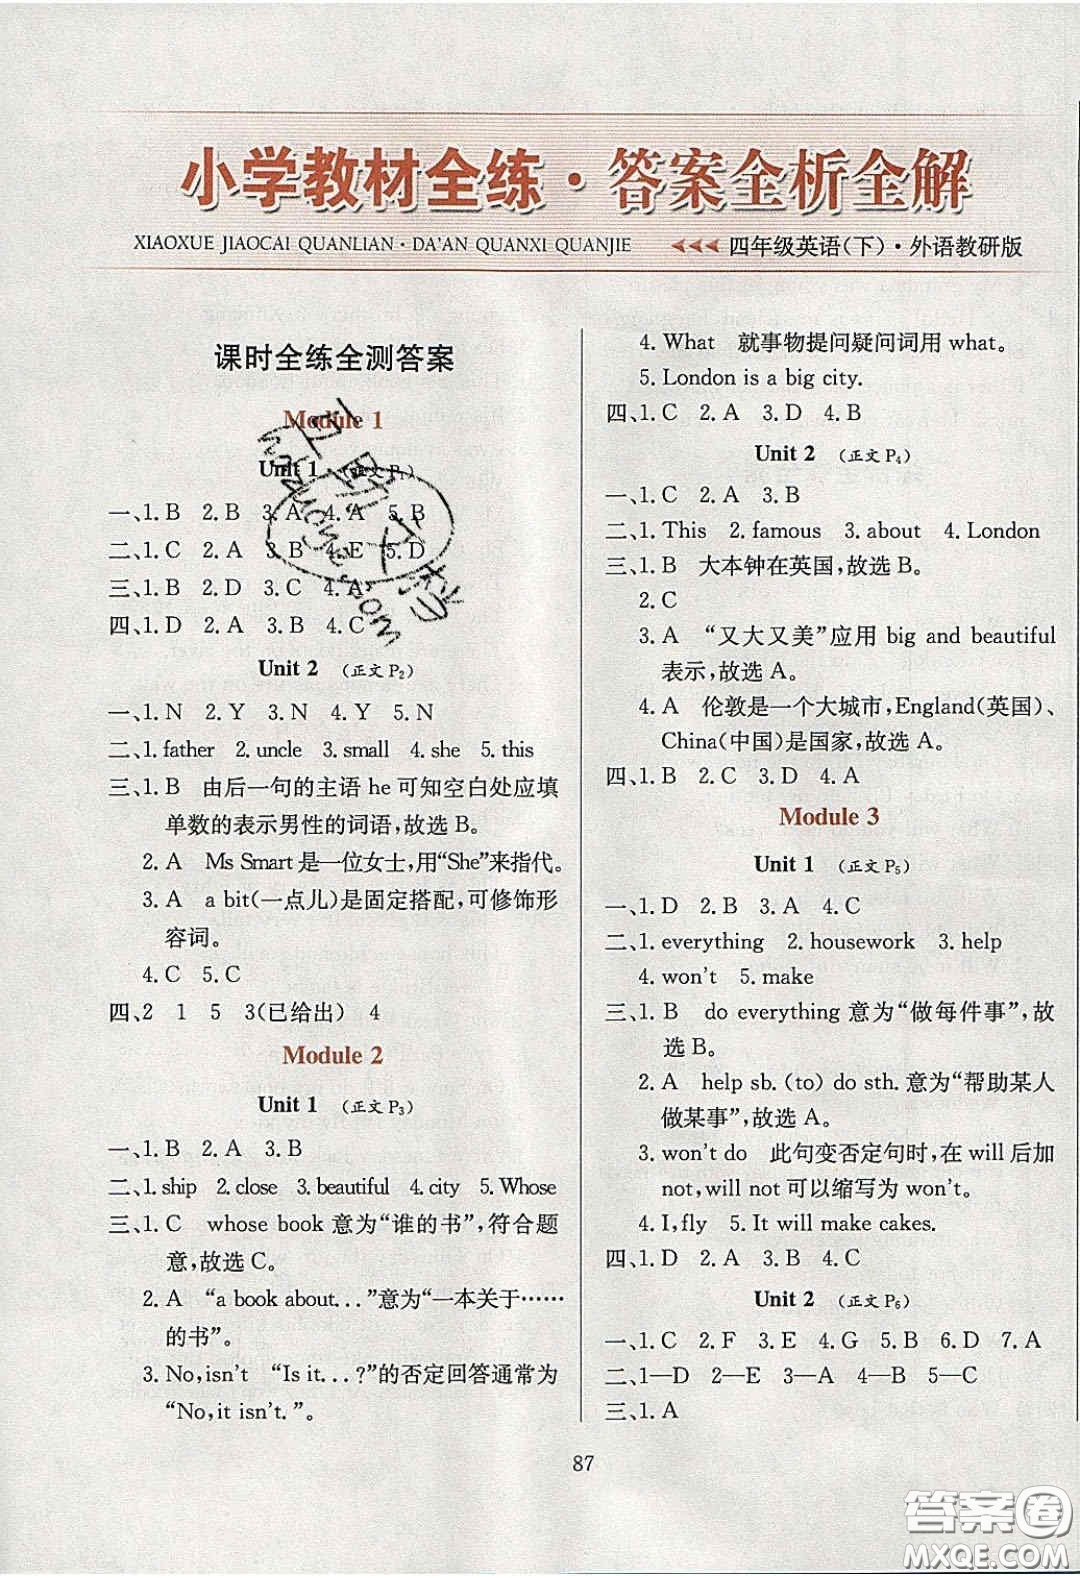 小学教材全练·答案全析全解
XIAOXUE JIAOCAI QUANLIAN·DA'AN QUANXI QUANJIE
四年级英语(下)·外语教研版
课时全练全测答案
Module 1
Unit 1 (正文P1)
一、1. B 2. B 3. A 4. A 5. B
二、1. C 2. A 3. B 4. E 5. D
三、1. B 2. D 3. C 4. A
四、1. D 2. A 3. B 4. C
Unit 2 (正文P2)
一、1. N 2. Y 3. N 4. Y 5. N
二、1. father 2. uncle 3. small 4. she 5. this
三、1. B 由后一句的主语 he 可知空白处应填
单数的表示男性的词语,故选 B。
2. A Ms Smart 是一位女士,用“She”来指代。
3. A a bit(一点儿)是固定搭配,可修饰形
容词。
4. C 5. C
四、2 1 5 3(已给出) 4
Module 2
Unit 1 (正文P3)
一、1. B 2. A 3. B
二、1. ship 2. close 3. beautiful 4. city 5. Whose
三、1. C whose book 意为“谁的书”,符合题
意,故选 C。
2. A “a book about...”意为“一本关于……
的书”。
3. No,isn't “Is it...?”的否定回答通常为
“No,it isn't.”。
4. What 就事物提问疑问词用 what。
5. London is a big city.
四、1. C 2. A 3. D 4. B
Unit 2 (正文P4)
一、1. C 2. A 3. B
二、1. This 2. famous 3. about 4. London
三、1. B 大本钟在英国,故选 B。
2. C
3. A “又大又美”应用 big and beautiful
表示,故选 A。
4. A 伦敦是一个大城市,England(英国)、
China(中国)是国家,故选 A。
四、1. B 2. C 3. D 4. A
Module 3
Unit 1 (正文P5)
一、1. D 2. B 3. A 4. C
二、1. everything 2. housework 3. help
4. won't 5. make
三、1. B do everything 意为“做每件事”,故
选 B。
2. A help sb. (to) do sth. 意为“帮助某人
做某事”,故选 A。
3. won't do 此句变否定句时,在 will 后加
not,will not 可以缩写为 won't。
4. I,fly 5. It will make cakes.
四、1. D 2. A 3. B 4. C
Unit 2 (正文P6)
一、1. C 2. F 3. E 4. G 5. B 6. D 7. A
二、1—D 2—E 3—A 4—B 5—C
三、1. A
87
答案圈
MXQE.COM